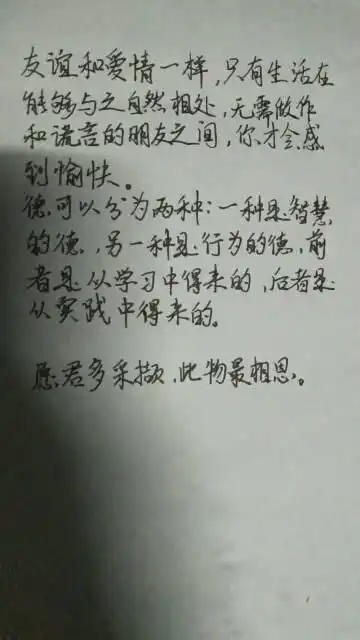 友谊和爱情一样，只有生活在
能够与之自然相处，无需做作
和谎言的朋友之间，你才会感
到愉快。
德可以分为两种：一种是智慧
的德，另一种是行为的德，前
者是从学习中得来的，后者是
从实践中得来的。
愿君多采撷，此物最相思。